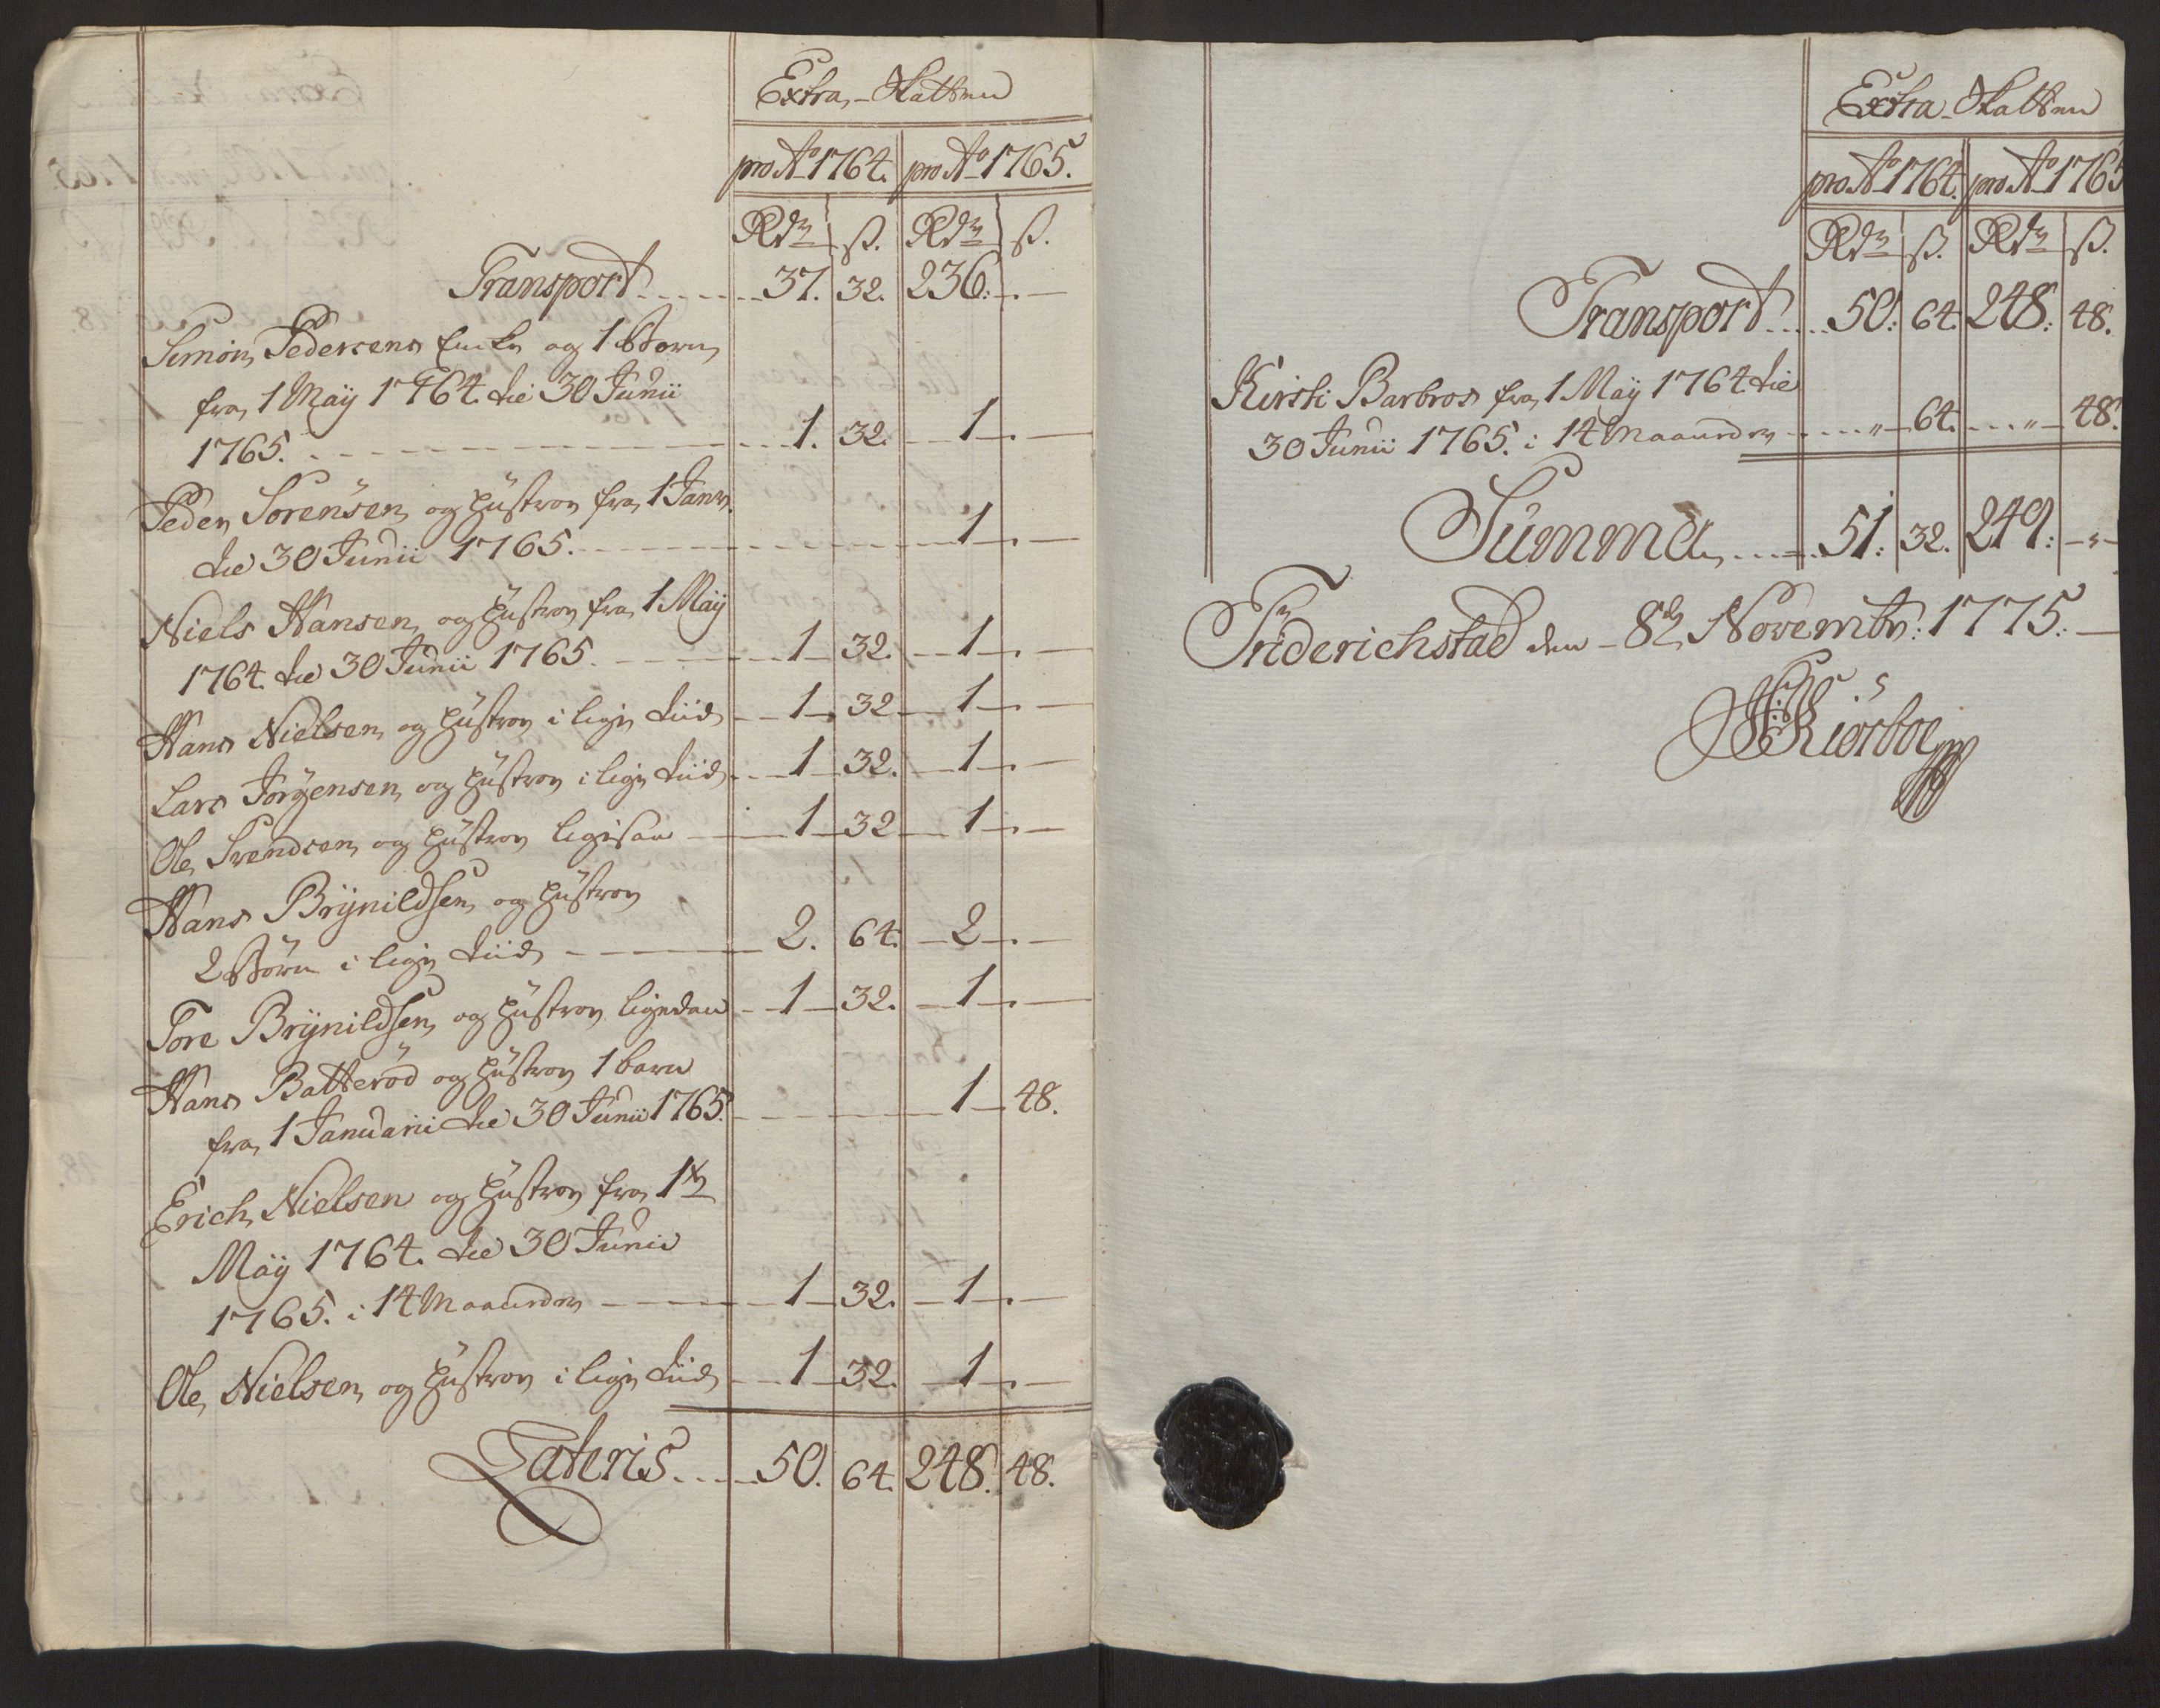 Extra-Skatten
pro Ao 1764. pro Ao 1765.
Rdr ß. Rdr ß.
Transport 37. 32. 236. -
Simon Pedersens Encke og 1 Barn
fra 1 Maÿ 1764 til 30 Junii
1765. 1. 32. 1 -
Peder Sörensen og Hustrou fra 1 Janr.
til 30 Junii 1765. 1 -
Niels Hansen og Hustrou fra 1 Maÿ
1764. til 30 Junii 1765. 1 32. 1 -
Hans Nielsen og Hustrou i lige Tiid 1 32 1 -
Lars Jörgensen og Hustrou i lige Tiid 1 32. 1 -
Ole Svendsen og Hustrou ligesaa 1 32 1 -
Hans Brÿnildsen og Hustrou
2 Börn i lige Tiid 2. 64. 2 -
Tore Brÿnildsen og Hustrou 1 32. 1 -
Hans Batteröd og Hustrou 1 barn
fra 1 Januarii til 30 Junii 1765. 1 48.
Erich Nielsen og Hustrou fra 1te
Maÿ 1764. til 30 Junii
1765. i 14 Maaneder 1 32. 1 -
Ole Nielsen og Hustrou i lige Tiid 1 32. 1 -
Lateris 50. 64. 248. 48.
Extra-Skatten
pro Ao 1764. pro Ao 1765
Rdr ß. Rdr ß.
Transport 50. 64. 248. 48.
Kirsti Barbros fra 1 Maÿ 1764 til
30 Junii 1765. i 14 Maaneder " 64. " 48.
Summa 51. 32. 249. -
Friderichstad den 8de Novembr: 1775.
Kiörboe